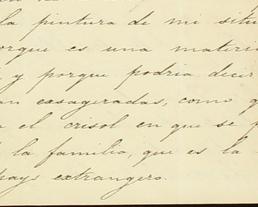 la pintura de mi situ
orque es una materia
y porque podria decir
an exageradas, como q
n el crisol en que se p
la familia, que es la
pays extrangero.